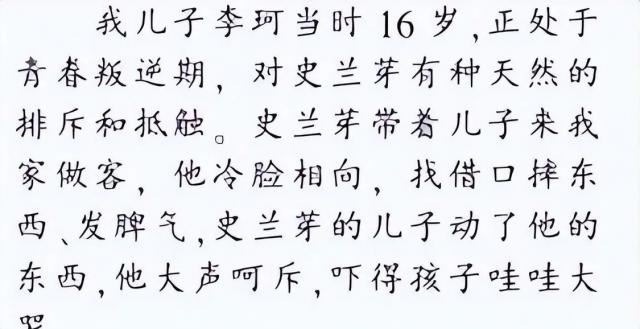 我儿子李珂当时16岁,正处于
青春叛逆期，对史兰芽有种天然的
排斥和抵触。史兰芽带着儿子来我
家做客，他冷脸相向，找借口摔东
西、发脾气,史兰芽的儿子动了他的
东西,他大声呵斥,吓得孩子哇哇大